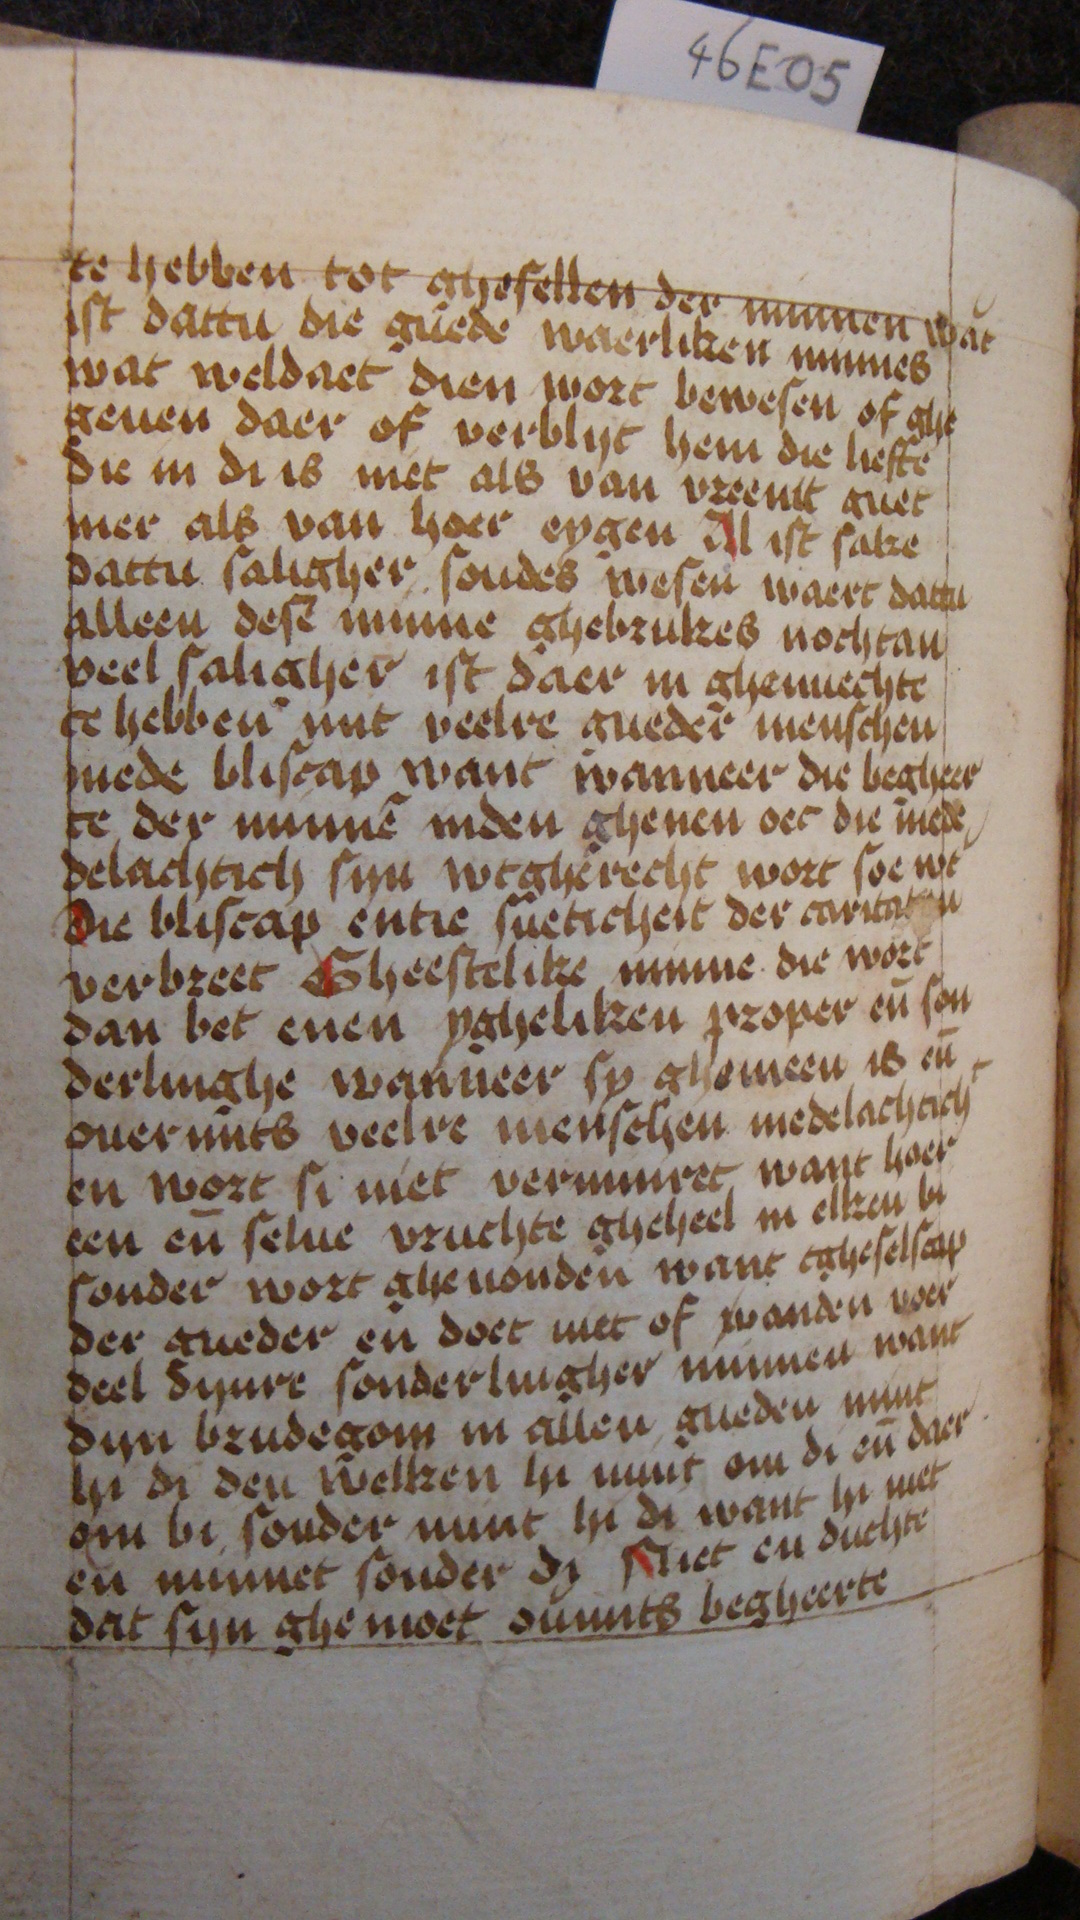 46E05
te hebben tot ghesellen der minnen wāt
ist dattu die guede waerliken minnes
wat weldaet dien wort bewesen of ghe
geuen daer of verblijt hem die liefte
die in di is niet als van vreemt guet
mer als van hoer eygen Al ist sake
dattu saligher soudes wesen waert dattu
alleen dese minne ghebrukes nochtan
veel saligher ist daer in ghenuechte
te hebben mit veelre gueder menschen
mede bliscap want wanneer die begheer
te der minnē inden ghenen oec die mede
delachtich sijn wtgherecht wort soe wt
Die bliscap entie sueticheit der caritaten
verbreet Gheestelike minne die wort
dan bet enen ygheliken proper eñ son
derlinghe wanneer sy ghemeen is eñ
ouermits veelre menschen medelachtich
en wort si niet verminret want hoer
een eñ selue vruchte gheheel in elken bi
sonder wort gheuonden want tgheselscap
der gueder en doet niet of vanden voer
deel dijnre sonderlingher minnen want
dijn brudegom in allen gueden mint
hi di den welken hi mint om di eñ daer
om bi sonder mint hi di want hi niet
en minnet sonder dy Niet en duchte
dat sijn ghemoet oūmits begheerte